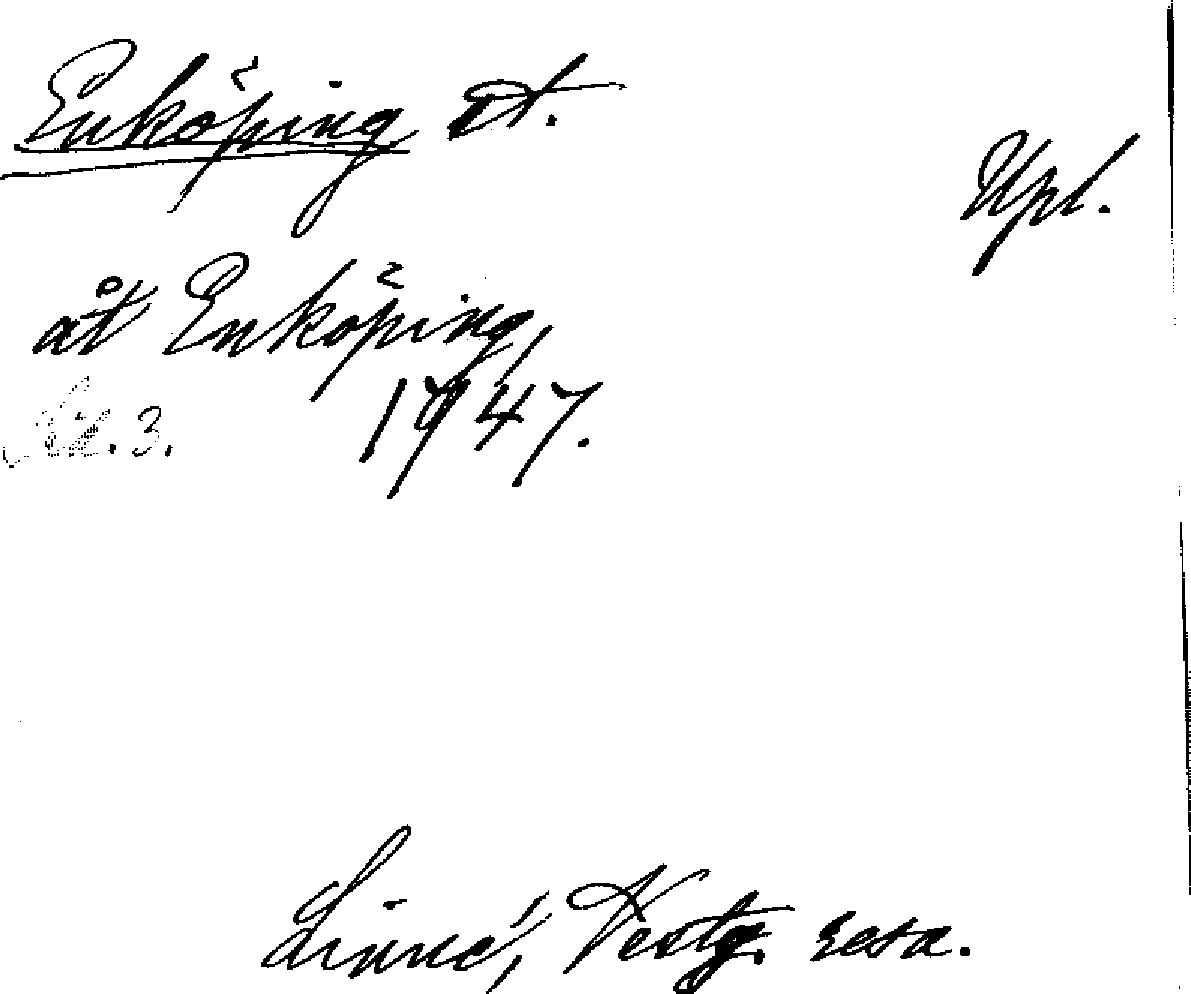 Enköping st.
Upl.
åt Enköping,
1747.
3.
Linné, Vestg. resa.